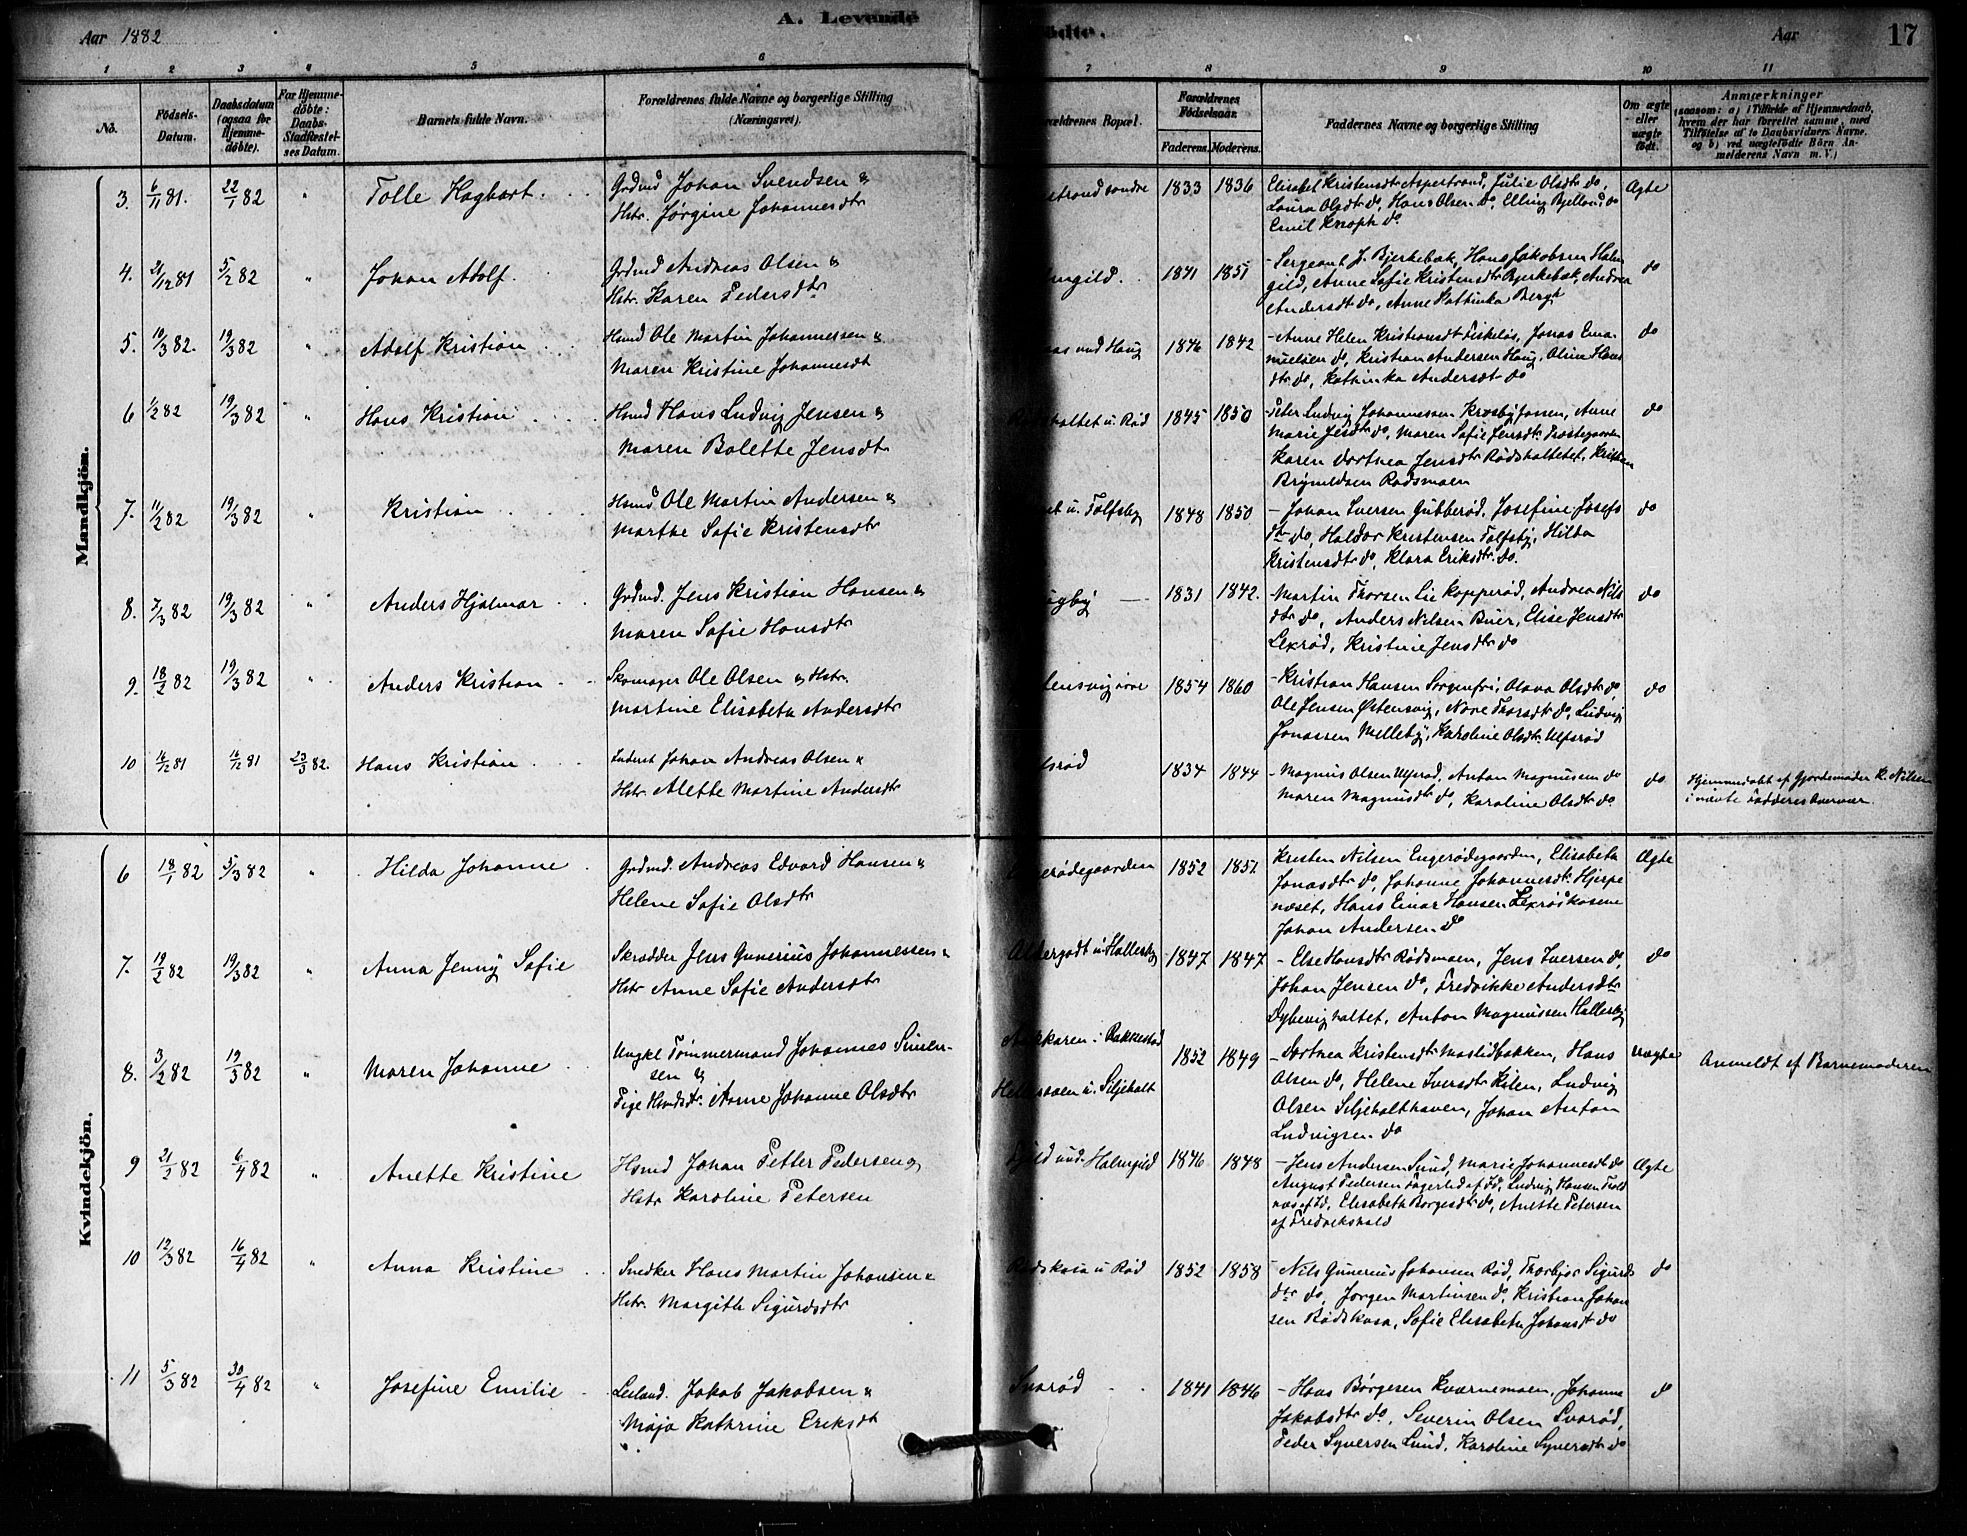 Aar 1882
A. Levende
ödte.
Aar
17
1 2 3 4 5 6 7 8 9 10 11
No.
Födsels-Datum.
Daabsdatum (ogsaa for Hjemme-döbte).
For Hjemme-döbte: Daabs-Stadfæstel-ses Datum.
Barnets fulde Navn.
Forældrenes fulde Navne og borgerlige Stilling (Næringsvei).
rældrenes Bopæl.
Forældrenes Födselsaar.
Faderens. Moderens.
Faddernes Navne og borgerlige Stilling
Om ægte eller uægte födt.
Anmærkninger
(saasom: a) i Tilfælde af Hjemmedaab,
hvem der har forrettet samme, med
Tilföielse af to Daabsvidners Navne.
og b) ved uægtefödte Börn An-
melderens Navn m. V.)
Mandkjön.
3. 6/11 81. 22/1 82 " Tolle Hagbart.
Grdmd Johan Svendsen &
Hstr. Jørgine Johannesdtr
strand søndre 1833 1836
Elisabet Kristensdtr Aspestrand, Julie Olsdtr do,
Laura Olsdtr do, Hans Olsen do, Elling Bjelland do
Emil Knoph do
Ægte
4. 21/12 81 5/2 82 " Johan Adolf
Grdmd Andreas Olsen &
Hstr. Karen Pedersdtr
mgild. 1841 1851
- Sergeant J. Bjerkebæk, Hans Jakobsen Holm
gild, Anne Sofie Kristensdtr Bjerkebæk, Andrea
Andersdt do, Anne Kathinka Bergh
do
5. 19/3 82. 19/3 82 " Adolf Kristian
Hsmd Ole Martin Johannessen &
Maren Kristine Johannesdt
aas und Haug 1846 1842
- Anne Helen Kristiansdt Fiskeløs, Jonas Ema-
nuelsen do, Kristian Andersen Haug, Oline Hans
dtr do, Kathinka Andersdt do
do
6 1/2 82 19/3 82 " Hans Kristian
Hsmd Hans Ludvig Jensen &
Maren Bolette Jensdtr
haltet u. Rød 1845 1850
- Peter Ludvig Johannessen Krosbyfossen, Anne
Marie Jensdtr do, Maren Sofie Jensdtr
Karen Dortnea Jensdtr Rødshaltetet, Kristian
Brynildsen Rødsmoen
do
7. 11/2 82 19/3 82 " Kristian
Hsmd Ole Martin Andersen &
Marthe Sofie Kristensdtr
u. Folfsby 1848 1850
- Johan Iversen Gubberød, Josefine Josefs
dtr do, Haldor Kristensen Folfsby, Hilda
Kristensdtr do, Klara Eriksdtr do.
do
8. 7/3 82 19/3 82 " Anders Hjalmar
Grdmd. Jens Kristian Hansen &
Maren Sofie Hansdtr
gby — 1831 1842.
- Martin Thorsen Lie Kopperød, Andrea Nils
dtr do, Anders Nilsen Buer, Elise Jensdtr
Lexrød, Kristine Jensdtr do
do
9. 18/2 82 19/3 82 " Anders Kristian
Skomager Ole Olsen & Hstr.
Martine Elisabeth Andersdtr
ensvig øvre 1854 1860
- Kristian Hansen Sorgenfri, Olava Olsdtr do,
Ole Jensen Østensvig, Nore Thorsdt do, Ludvig
Jonassen Melleby, Karoline Olsdtr Ulfsrød
do
10 16/12 81 16/12 81 23/3 82. Hans Kristian
Inderst Johan Andreas Olsen &
Hstr. Alette Martine Andersdtr
lsrød 1834 1844
- Magnus Olsen Ulfsrød, Anton Magnussen do
Maren Magnusdtr do, Karoline Olsdtr do
do
Hjemmedøbt af Gjordemoder K. Nilsen
i nævnte Fadderes Overvær.
Kvindekjön.
6 18/1 82 5/3 82 " Hilda Johanne
Grdmd. Andreas Edvard Hansen &
Helene Sofie Olsdtr
erødegaarden 1852 1851
Kristen Nilsen Engerødegaarden, Elisabeth
Jonasdtr do, Johanne Johannesdtr Hjerpe
næset, Hans Einar Hansen Lexrødkosene
Johan Andersen do
Ægte
7. 19/2 82 19/3 82 " Anna Jenny Sofie
Skrædder Jens Gunerius Johannessen &
Hstr Anne Sofie Andersdtr
u. Hallesby 1847 1847
- Else Hansdtr Rødsmoen, Jens Iversen do,
Johan Jensen do, Fredrikke Andersdtr
Dybevighaltet, Anton Magnussen Hallesby
do
8. 3/2 82 19/3 82 " Maren Johanne
Ungkl Tømmermand Johannes Simen-
sen &
Pige Hsmdsdtr. Anne Johanne Olsdtr
i Rakkestad
u. Siljeholt
1852 1849
- Dortnea Kristensdtr Mastidbakken, Hans
Olsen do, Helene Iversdtr Kilen, Ludvig
Olsen Siljeholthaven, Johan Anton
Ludvigsen do
Uægte
Anmeldt af Barnemoderen
9 21/2 82 6/4 82 " Anette Kristine
Hsmd Johan Petter Pedersen &
Hstr Karoline Petersen
und. Holmgild 1846 1848
- Jens Andersen Sund, Marie Johannesdt do
August Pedersen Fagerlid af Id, Ludvig Hansen Trold
næs af Id, Elisabeth Børgesdtr do, Anette Petersen
af Fredrikshald
Ægte
10 12/3 82 16/4 82 " Anna Kristine
Snedker Hans Martin Johansen &
Hstr. Margith Sigurdsdtr
Rødskasa u Rød 1852 1858
- Nils Gunerius Johansen Rød, Thorbjør Sigurds
dtr do, Jørgen Martinsen do, Kristian Johan
sen Rødskasa, Sofie Elisabeth Johansdt do
do
11 5/3 82 30/4 82 " Josefine Emilie
Leiland. Jakob Jakobsen &
Maja Kathrine Eriksdt
Svarød 1841 1846
- Hans Børgesen Kværnemoen, Johanne
Jakobsdtr do, Severin Olsen Svarød,
Peder Syversen Lund, Karoline Syversdtr do
do